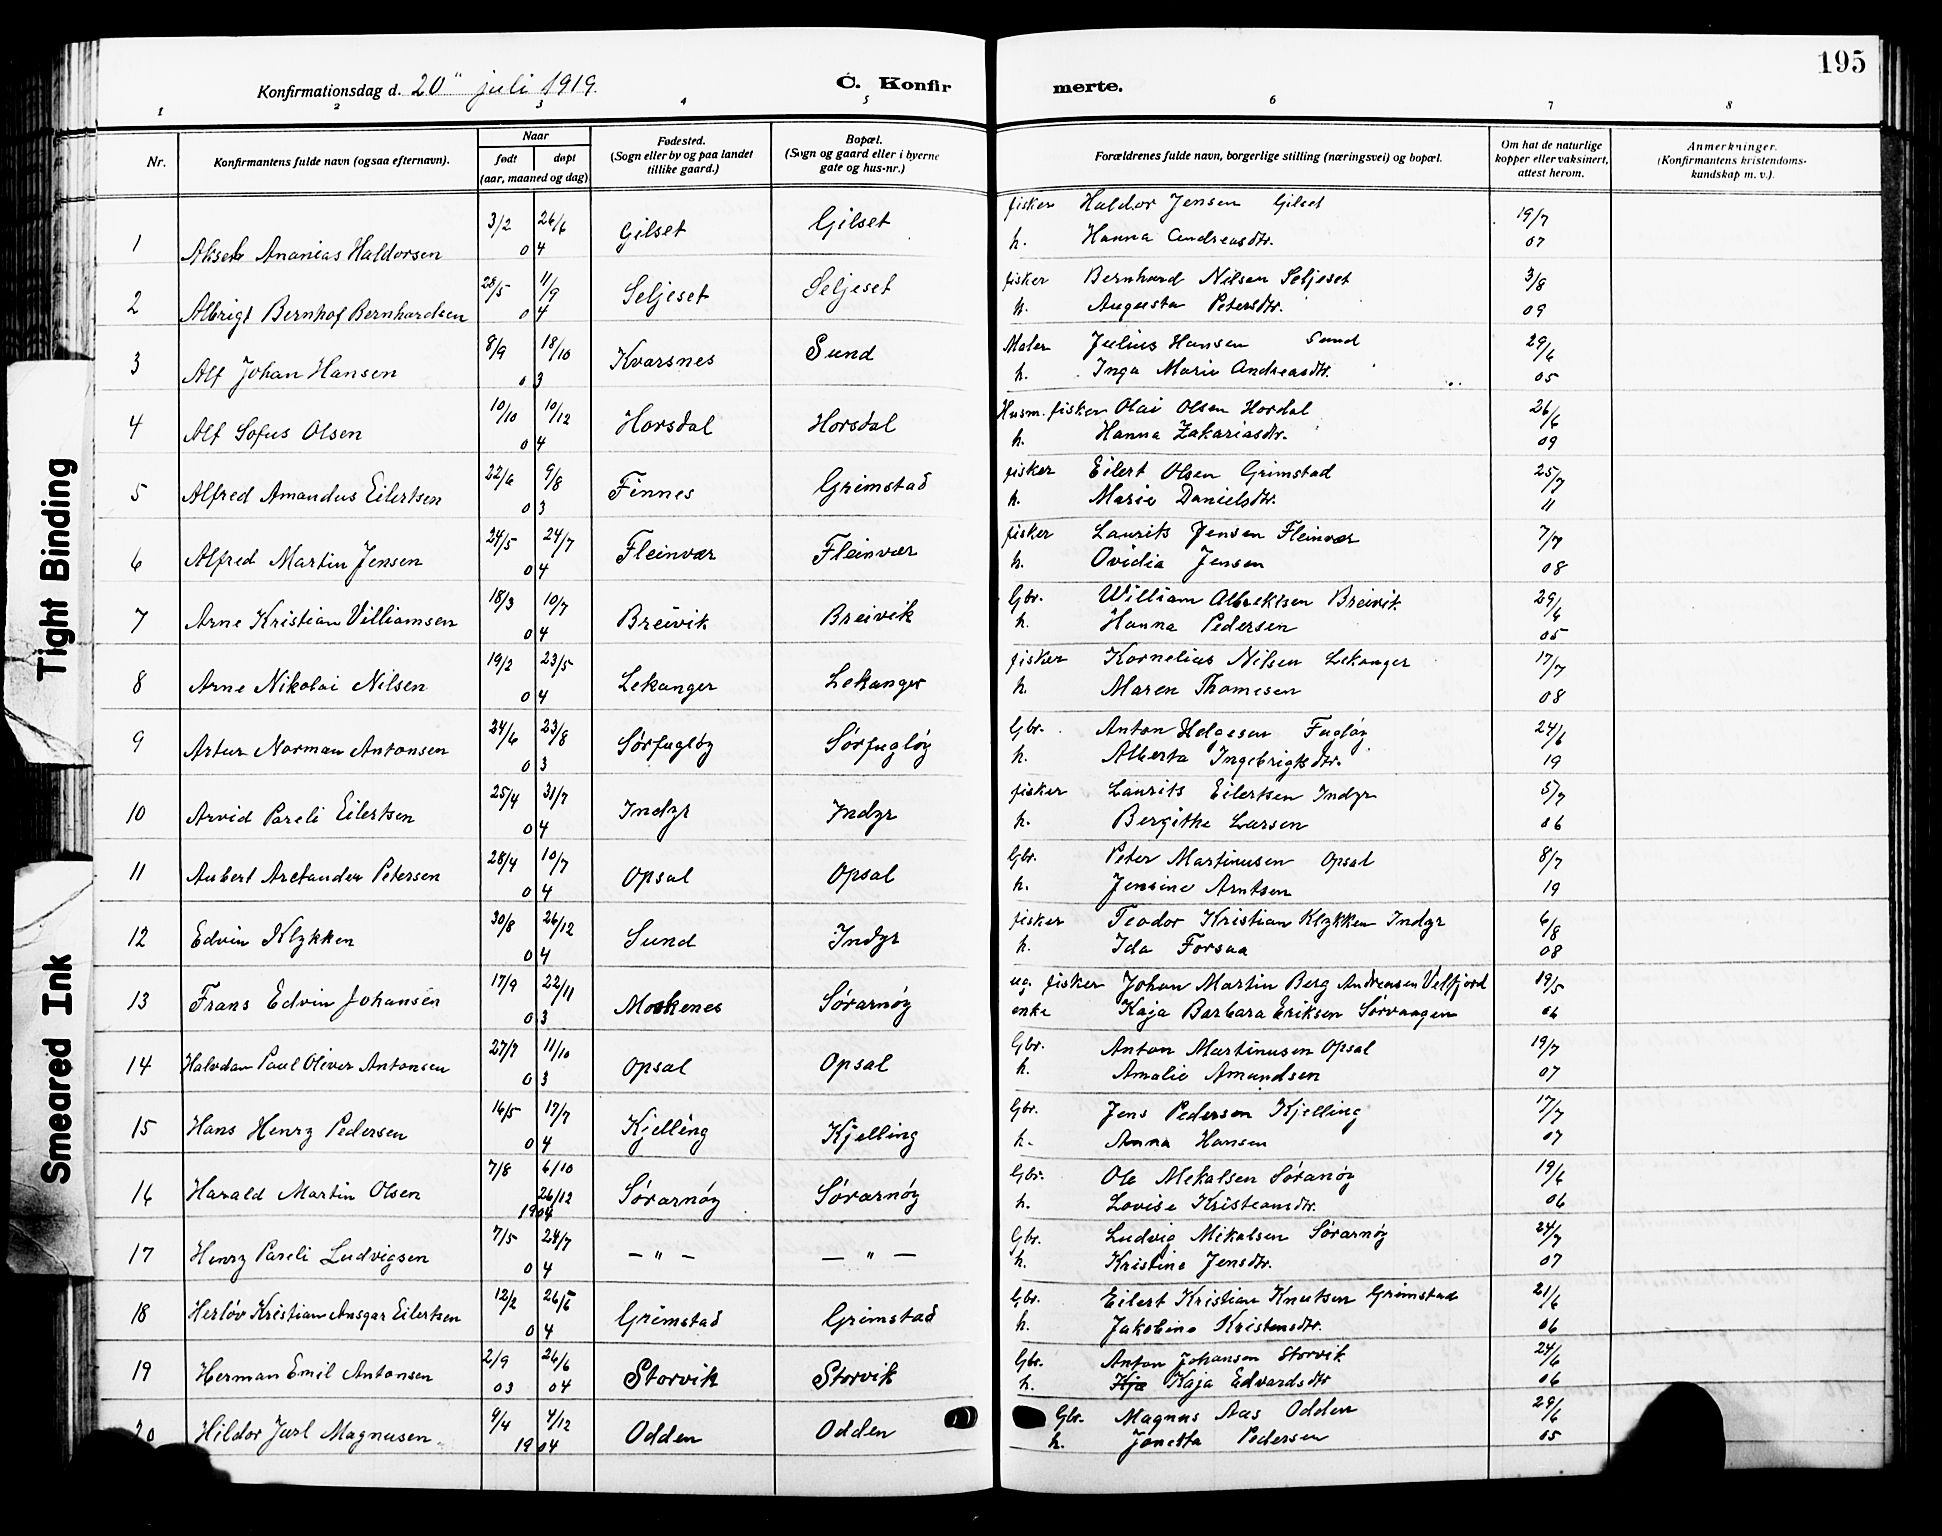 195
Konfirmationsdag d. 20" juli 1919.
C. Konfir merte.
1 2 3 4 5 6 7 8
Nr.
Konfirmantens fulde navn (ogsaa efternavn).
Naar
født
døpt
(aar, maaned og dag)
Fødested.
(Sogn eller by og paa landet
tillike gaard.)
Bopæl.
(Sogn og gaard eller i byerne
gate og hus-nr.)
Forældrenes fulde navn, borgerlige stilling (næringsvei) og bopæl.
Om hat de naturlige
kopper eller vaksinert,
attest herom.
Anmerkninger.
(Konfirmantens kristendoms-
kundskap m. v.).
1 Aksel Ananias Haldorsen 3/2 26/6 04 Gilset Gilset fisker Haldor Jensen Gilset 19/7
h. Hanna Andreasdtr. 07
2 Albrigt Bernhof Bernhardsen 28/5 11/9 04 Seljeset Seljeset fisker Bernhard Nilsen Seljeset 3/8
h. Augusta Petersdtr. 09
3 Alf Johan Hansen 8/9 18/10 03 Kvarsnes Sund Maler Julius Hansen Sund 29/6
h. Inga Marie Andreasdtr. 05
4 Alf Sofus Olsen 10/10 10/12 04 Horsdal Horsdal Husm. fisker Olai Olsen Hordal 26/6
h. Hanna Zakariasdtr. 09
5 Alfred Amandus Eilertsen 22/6 9/8 03 Finnes Grimstad fisker Eilert Olsen Grimstad 25/7
h. Marie Danielsdtr. 11
6 Alfred Martin Jensen 24/5 24/7 04 Fleinvær Fleinvær fisker Laurits Jensen Fleinvær 7/7
h. Ovidia Jensen 08
7 Arne Kristian Villiamsen 18/3 10/7 04 Breivik Breivik Gbr. William Albrektsen Breivik 29/6
h. Hanna Pedersen 05
8 Arne Nikolai Nilsen 19/2 23/5 04 Lekanger Lekanger fisker Kornelius Nilsen Lekanger 17/7
h. Maren Thomesen 08
9 Artur Norman Antonsen 24/6 23/8 03 Sørfugløy Sørfugløy Gbr. Anton Helgesen Fugløy 24/6
h. Alberta Ingebrigtsdtr. 19
10 Arvid Pareli Eilertsen 25/4 31/7 04 Indyr Indyr fisker Laurits Eilertsen Indyr 5/7
h. Bergithe Larsen 06
11 Aubert Arctander Petersen 28/4 10/7 04 Opsal Opsal Gbr. Peter Martinusen Opsal 8/7
h. Jensine Arntsen 19
12 Edvin Klykken 30/8 26/12 04 Sund Indyr fisker Teodor Kristian Klykken Indyr 6/8
h. Ida Forsaa 08
13 Frans Edvin Johansen 17/9 22/11 03 Moskenes Sørarnøy ug. fisker Johan Martin Berg Andreasen Velfjord 19/5
enke Kaja Barbara Eriksen Sørvaagen 06
14 Halvdan Paul Oliver Antonsen 27/7 11/10 03 Opsal Opsal Gbr. Anton Martinusen Opsal 19/7
h. Amalie Amundsen 07
15 Hans Henry Pedersen 16/5 17/7 04 Kjelling Kjelling Gbr. Jens Pedersen Kjelling 17/7
h. Anna Hansen 07
16 Harald Martin Olsen 7/8 6/10 26/12 1904 Sørarnøy Sørarnøy Gbr. Ole Mekalsen Søranøy 19/6
h. Lovise Kristiansdtr. 06
17 Henry Pareli Ludvigsen 7/5 24/7 04 — " — — " — Gbr. Ludvig Mikalsen Sørarnøy 24/7
h. Kristine Jensdtr. 07
18 Herløv Kristian Ansgar Eilertsen 12/2 26/6 04 Grimstad Grimstad Gbr. Eilert Kristian Knutsen Grimstad 21/6
h. Jakobine Kristensdtr. 06
19 Herman Emil Antonsen 2/9 03 26/6 04 Storvik Storvik Gbr. Anton Johansen Storvik 24/6
h. Kja Kaja Edvardsdtr 06
20 Hildor Jarl Magnusen 9/4 4/12 1904 Odden Odden Gbr. Magnus Aas Odden 29/6
h. Jonetta Pedersen 05
Tight Binding
Smeared Ink